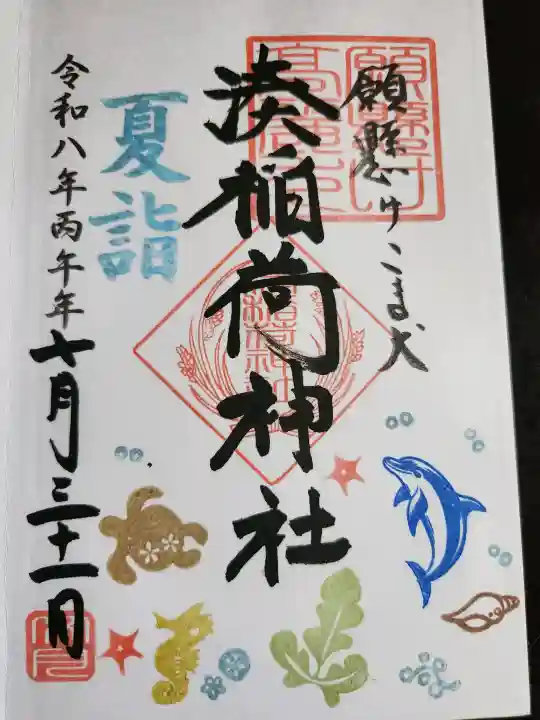 願懸けこま犬
湊稲荷神社
夏詣
令和八年丙午年七月三十一日